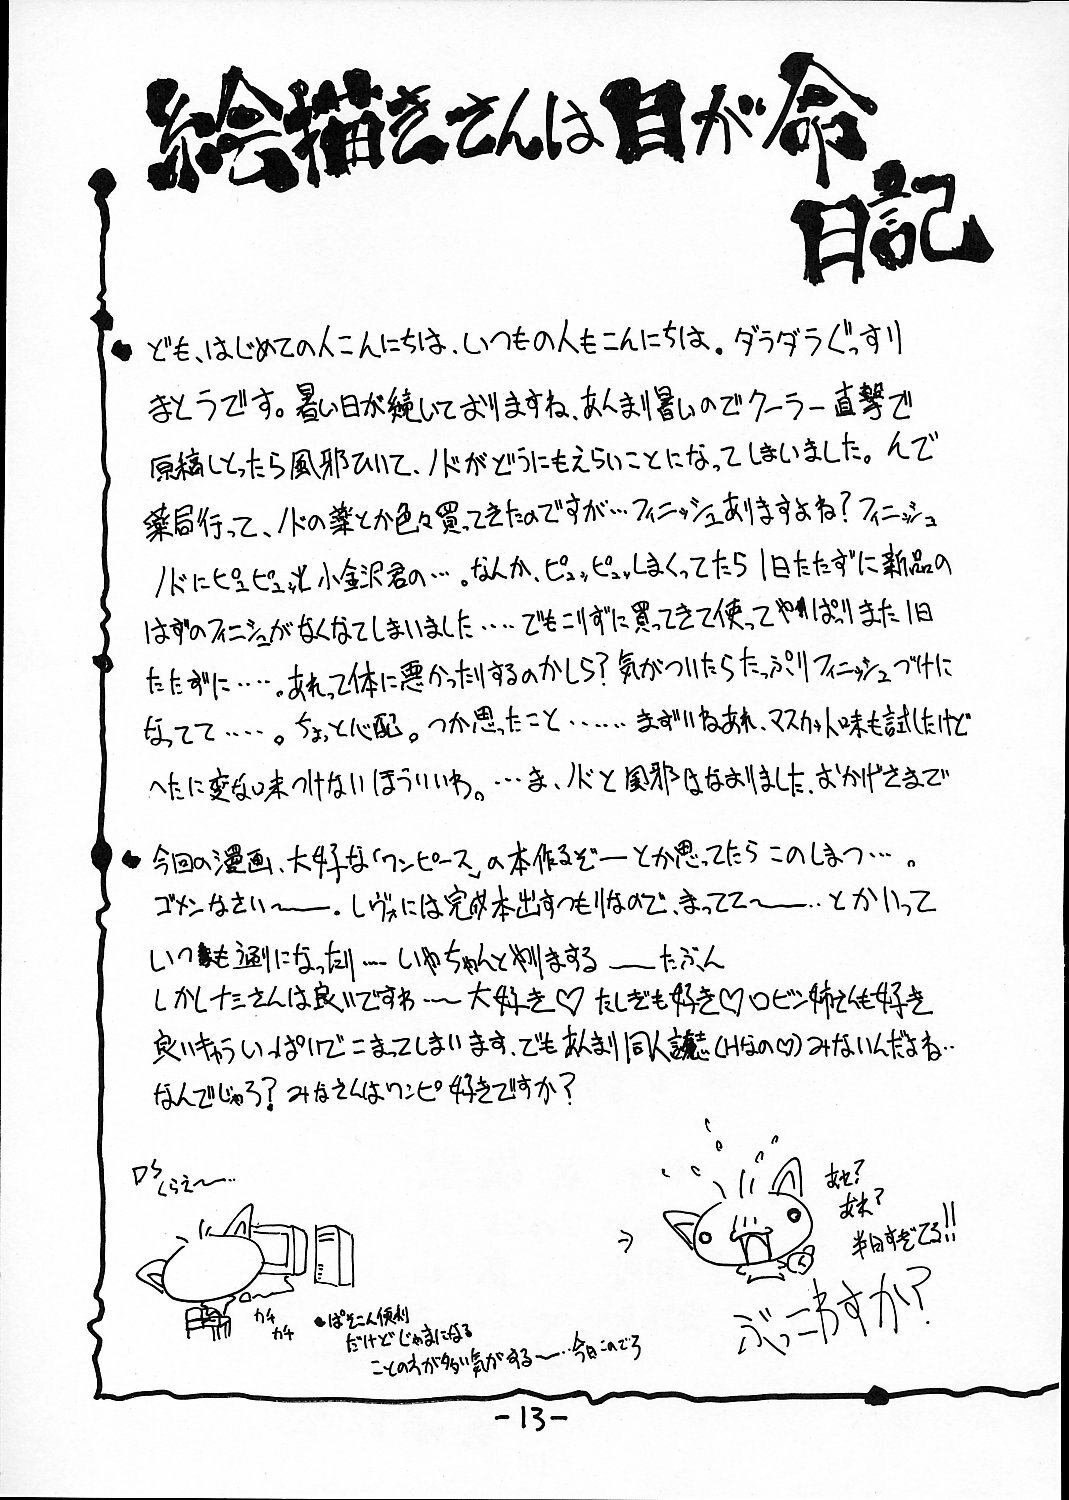 絵描きさんは目が命
日記
ども、はじめての人こんにちは、いつもの人もこんにちは。ダラダラぐっすり
まとうです。暑い日が続いておりますね、あんまり暑いのでクーラー直撃で
原稿しとったら風邪ひいて、ノドがどうにもえらいことになってしまいました。んで
薬局行って、ノドの薬とか色々買ってきたのですが…フィニッシュありますよね?フィニッシュ
ノドにピュピュッと小金沢君の…。なんか、ピュッピュッしまくってたら1日たたずに新品の
はずのフィニシュがなくなてしまいました‥‥でもこりずに買ってきて使ってやっぱりまた1日
たたずに‥‥。あれって体に悪かったりするのかしら?気がついたらたっぷりフィニッシュづけに
なってて‥‥。ちょっと心配。つか思ったこと‥‥‥まずいねあれ、マスカット味も試したけど
へたに変な味つけないほういいわ。…ま、ノドと風邪はなおりました、おかげさまで
今回の漫画、大好な「ワンピース」の本作るぞーとか思ってたらこのしまつ…。
ゴメンなさい〜。レヴォには完成本出すつもりなので、まってて〜‥とかいって
いつも通りになったり‥‥いやちゃんとやりまする ―たぶん
しかしナミさんは良いですわ―大好き♡たしぎも好き♡ロビン姉さんも好き
良いキャラいっぱいでこまってしまいます、でもあんまり同人誌(Hなの♡)みないんだよね‥
なんでじゃろ?みなさんはワンピ好きですか?
くらえ〜‥
カチ
カチ
ぱそこん便利
だけどじゃまになる
ことの方が多い気がする〜‥今日このごろ
あせ?
あれ?
半日すぎてる!!
ぶっこわすか?
-13-